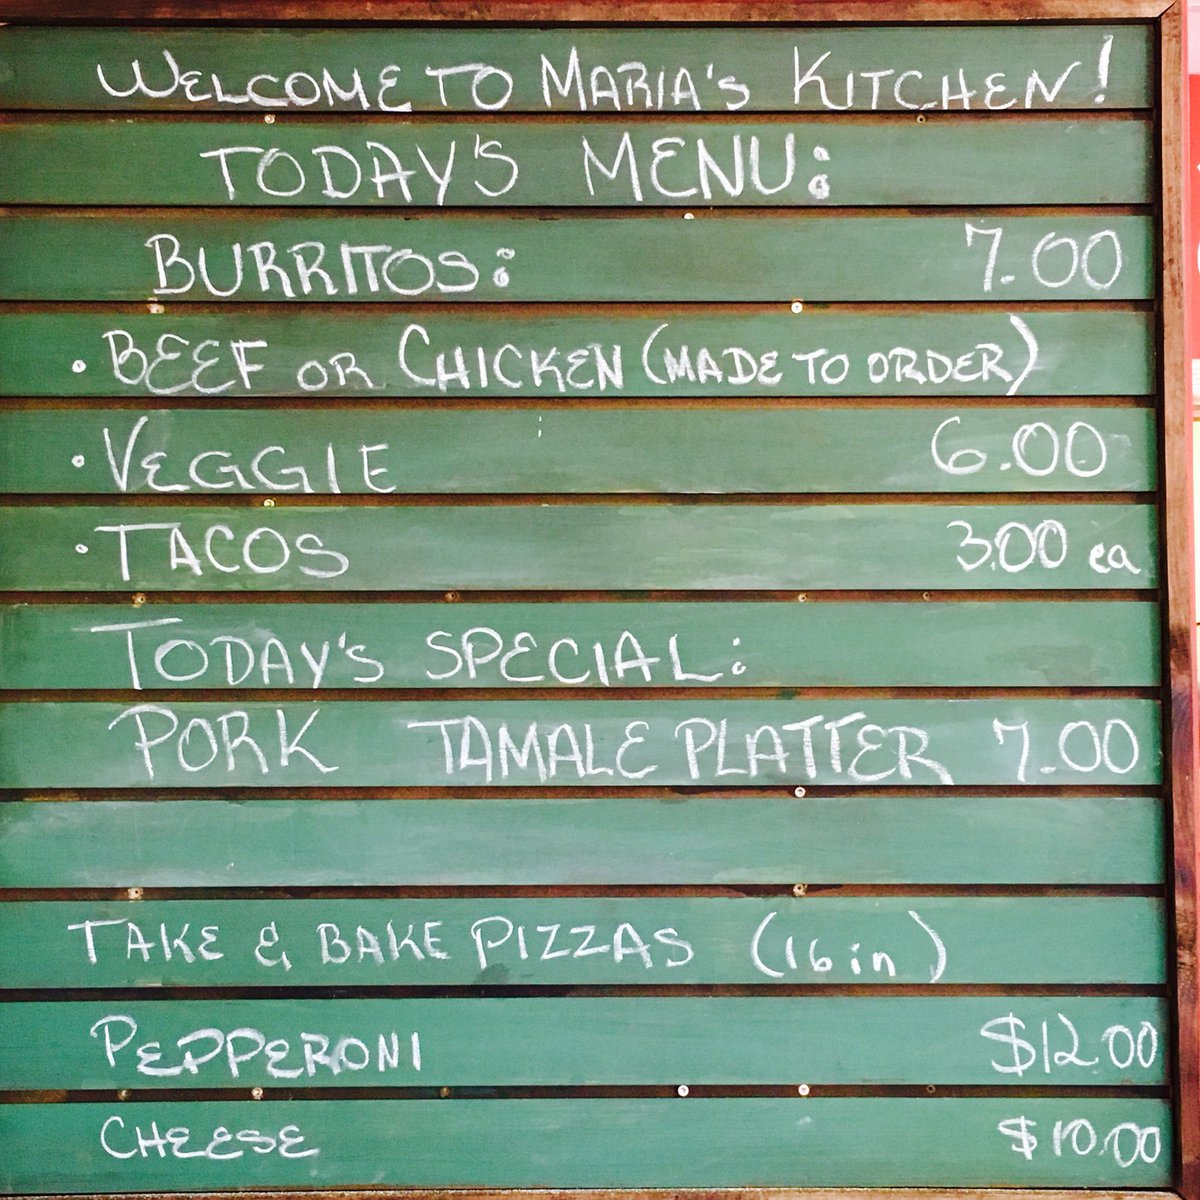 WELCOME TO MARIA'S KITCHEN!
TODAY'S MENU:
BURRITOS: 7.00
• BEEF OR CHICKEN (MADE TO ORDER)
• VEGGIE 6.00
• TACOS 3.00 ea
TODAY'S SPECIAL:
PORK TAMALE PLATTER 7.00
TAKE & BAKE PIZZAS (16 in)
PEPPERONI $12.00
CHEESE $10.00